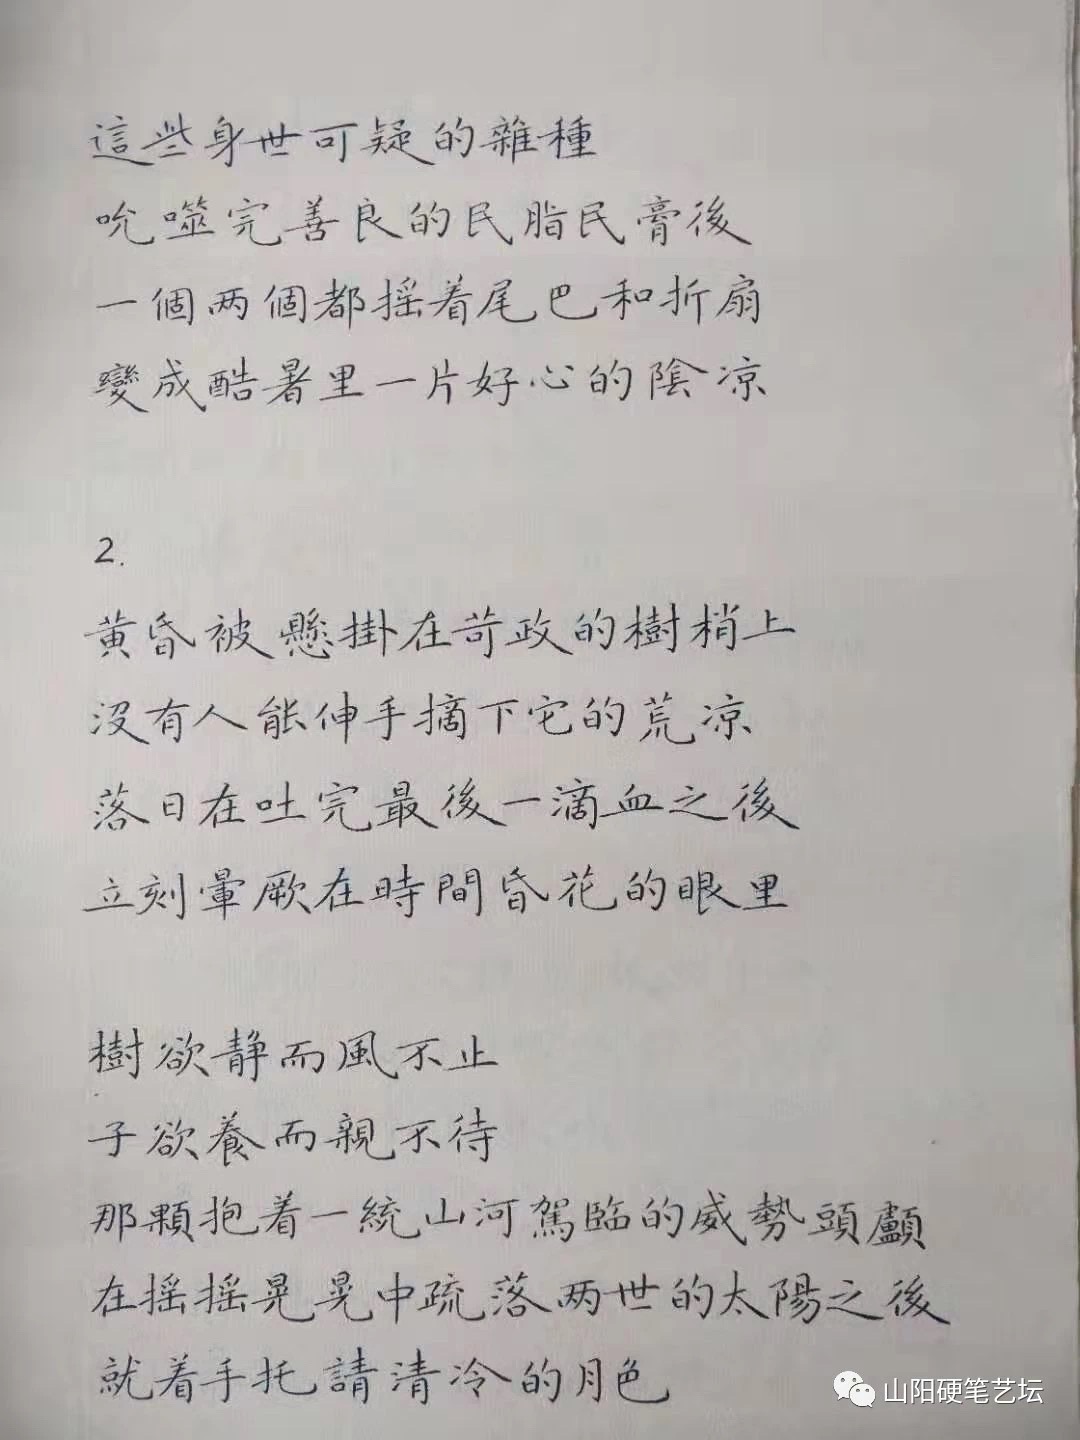 這些身世可疑的雜種
吮噬完善良的民脂民膏後
一個两個都摇着尾巴和折扇
變成酷暑里一片好心的陰凉
2.
黄昏被懸掛在苛政的樹梢上
沒有人能伸手摘下它的荒凉
落日在吐完最後一滴血之後
立刻暈厥在時間昏花的眼里
樹欲静而風不止
子欲養而親不待
那顆抱着一統山河駕臨的威勢頭顱
在摇摇晃晃中疏落两世的太陽之後
就着手托請清冷的月色
山阳硬笔艺坛